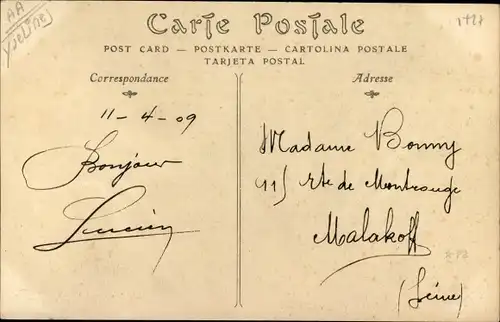 AA
Yvelines
Carte Postale
POST CARD — POSTKARTE — CARTOLINA POSTALE
TARJETA POSTAL
Correspondance
Adresse
11-4-09
Bonjour
Lucien
Madame Bonny
115 rte de Montrouge
Malakoff
(Seine)